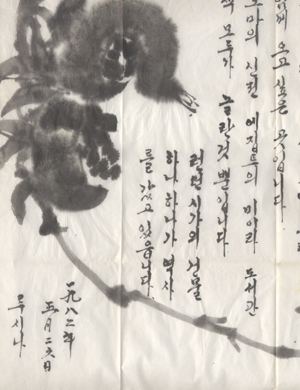 오고 싶은 곳입니다
로마의 시킨 에집트의 미이라 도서관
모두가 놀란것 뿐입니다
런던시가의 건물
하나하나가 역사
를 갖고 있읍니다
一九八二年
五月二六日
루시아